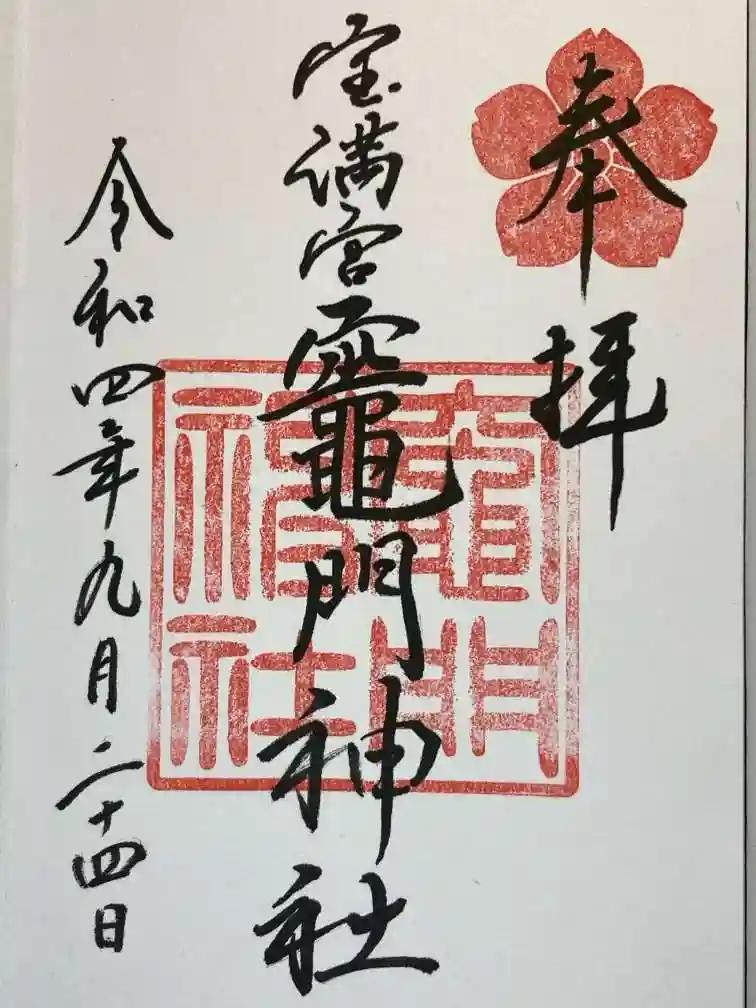 奉拝
宝満宮竈門神社
令和四年九月二十四日
竈門神社